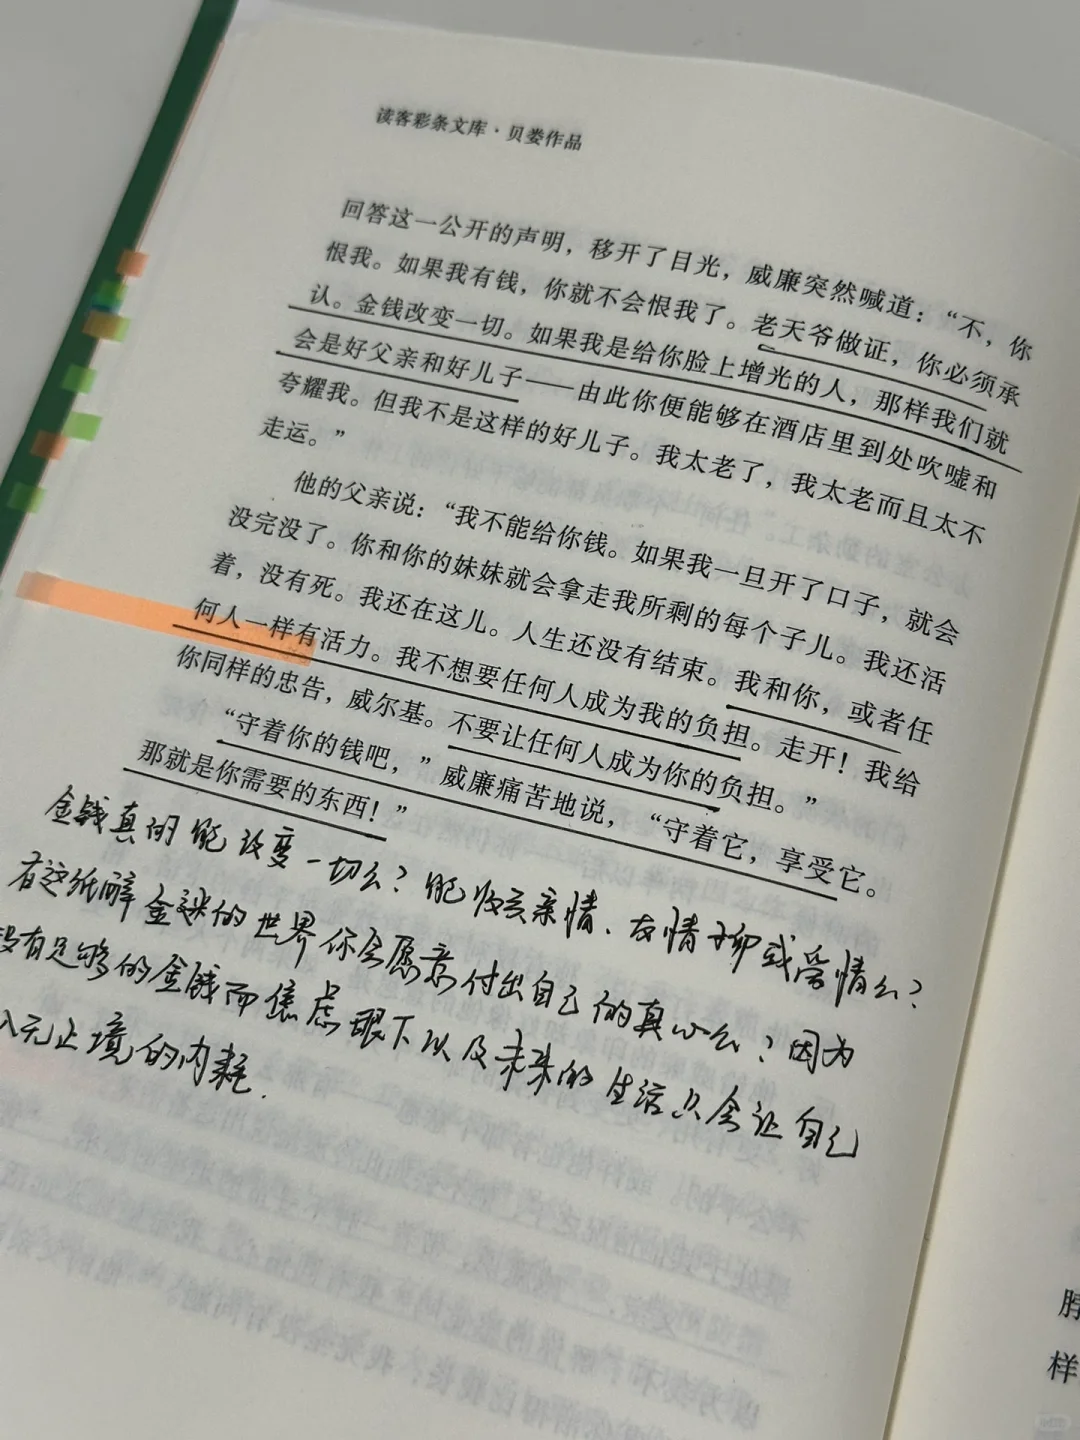 读客彩条文库·贝娄作品
回答这一公开的声明，移开了目光，威廉突然喊道：“不，你
恨我。如果我有钱，你就不会恨我了。老天爷做证，你必须承
认。金钱改变一切。如果我是给你脸上增光的人，那样我们就
会是好父亲和好儿子——由此你便能够在酒店里到处吹嘘和
夸耀我。但我不是这样的好儿子。我太老了，我太老而且太不
走运。”
他的父亲说：“我不能给你钱。如果我一旦开了口子，就会
没完没了。你和你的妹妹就会拿走我所剩的每个子儿。我还活
着，没有死。我还在这儿。人生还没有结束。我和你，或者任
何人一样有活力。我不想要任何人成为我的负担。走开！我给
你同样的忠告，威尔基。不要让任何人成为你的负担。”
“守着你的钱吧，”威廉痛苦地说，“守着它，享受它。
那就是你需要的东西！”
金钱真的能改变一切么？能收买亲情、友情抑或爱情么？
在这纸醉金迷的世界你会愿意付出自己的真心么？因为
没有足够的金钱而焦虑眼下以及未来的生活只会让自己
入无止境的内耗.
脖
样